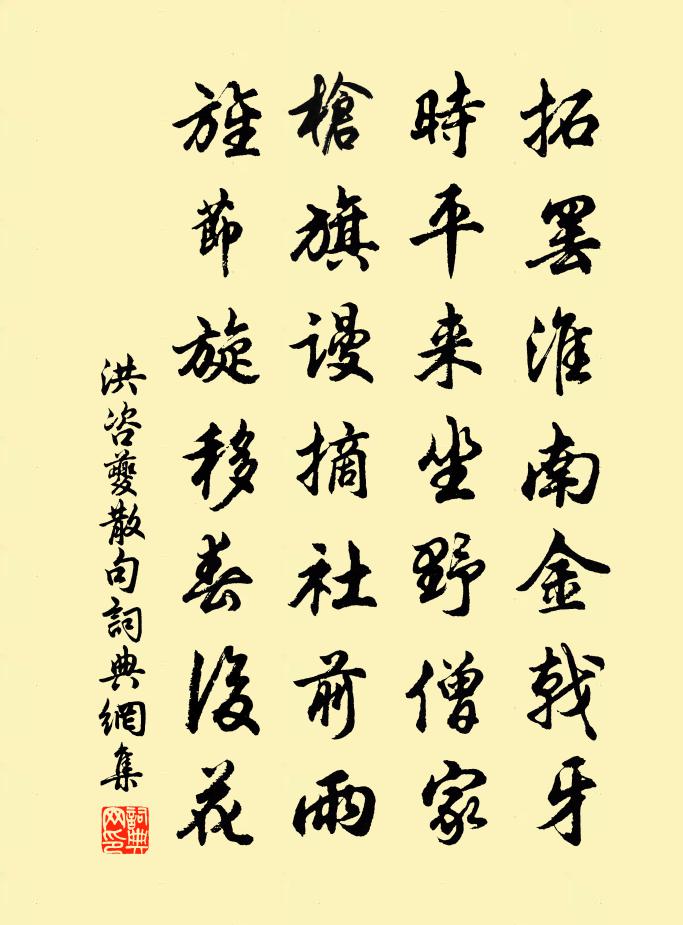 拓罢淮南金戟牙
時平来坐野僧家
槍旗謾摘社前雨
旌節旋移春後花
洪咨夔散句詞典網集
詞典網印